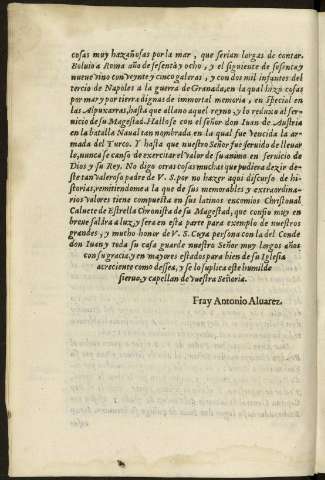 cosas muy hazañosas por la mar, que serian largas de contar.
Boluio a Roma año de sesenta y ocho, y el siguiente de sesenta y
nueue vino con veynte y cinco galeras, y con dos mil infantes del
tercio de Napoles a la guerra de Granada, en la qual hizo cosas
por mar y por tierra dignas de immortal memoria, en special en
las Alpuxarras, hasta que allano aquel reyno, y lo reduxo al ser-
uicio de su Magestad. Hallose con el señor don Iuan de Austria
en la batalla Naual tan nombrada en la qual fue vencida la ar-
mada del Turco. Y hasta que nuestro Señor fue seruido de lleuar
lo, nunca se cansò de exercitar el valor de su animo en seruicio de
Dios y su Rey. No digo otras cosas muchas que pudiera dezir de-
ste tan valeroso padre de V. S. por no hazer aqui discurso de hi-
storias, remitiendome a la que de sus memorables y extraordina-
rios valores tiene compuesta en sus latinos encomios Christoual
Caluete de Estrella Chronista de su Magestad, que confio muy en
breue saldra a luz, y sera en esta parte para exemplo de nuestros
grandes, y mucho honor de V. S. Cuya persona con la del Conde
don Iuan, y toda su casa guarde nuestro Señor muy largos años
con su gracia, y en mayores estados para bien de su Iglesia
acreciente como dessea, y se lo suplica este humilde
sieruo, y capellan de vuestra Señoria.
Fray Antonio Aluarez.